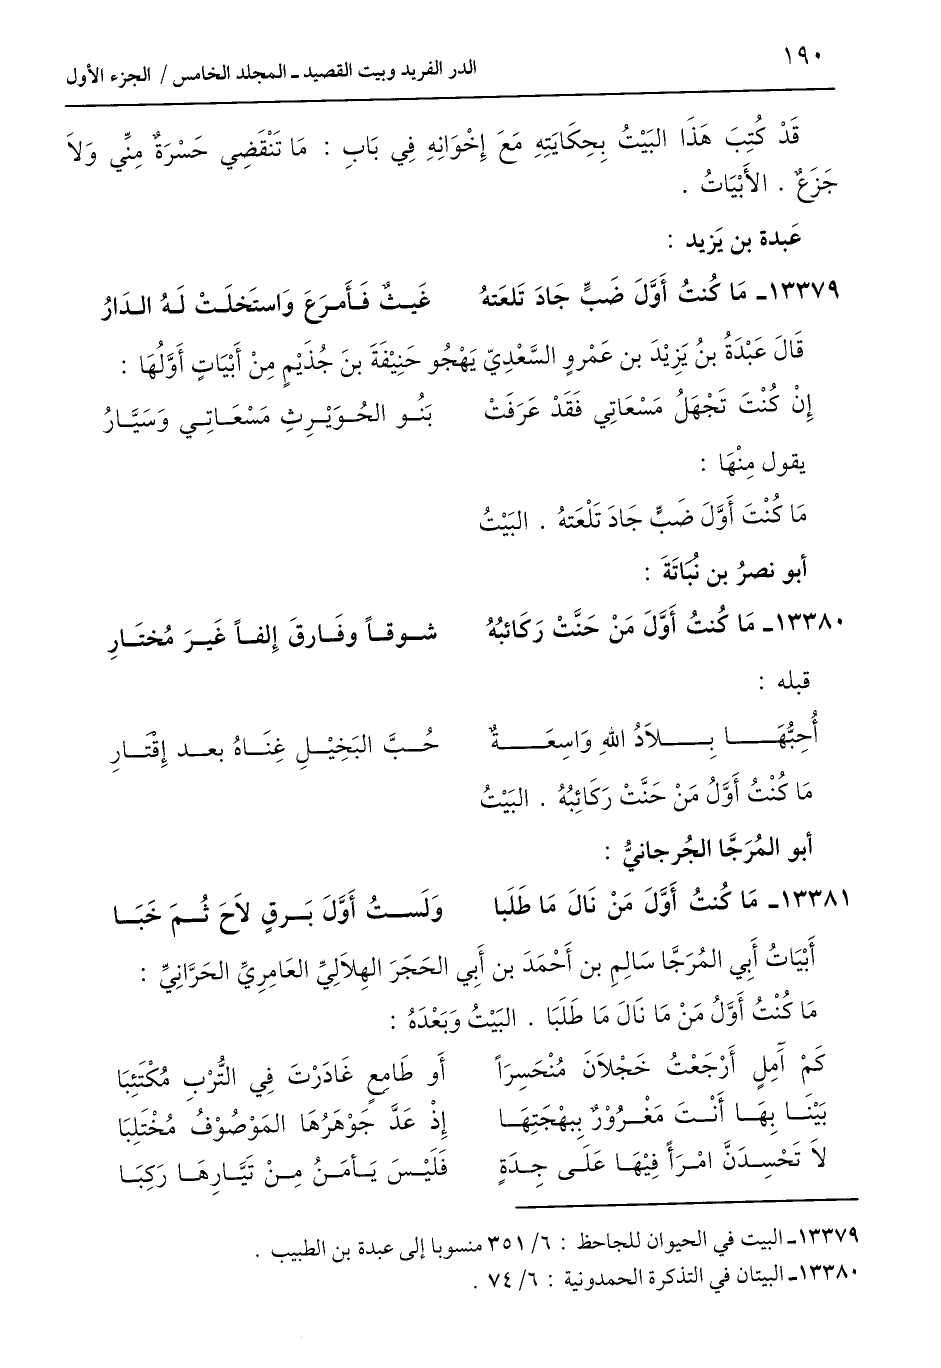 ١٩٠
الدر الفريد وبيت القصيد ـ المجلد الخامس / الجزء الأول
قَدْ كُتِبَ هَذَا البَيْتُ بِحِكَايَتِهِ مَعَ إِخْوَانِهِ فِي بَابِ : مَا تَنْقَضِي حَسْرَةٌ مِنِّي وَلاَ
جَزَعٌ . الأَبْيَاتُ .
عَبدة بن يَزيد :
١٣٣٧٩ـ مَا كُنتُ أَوَّلَ ضَبٍّ جَادَ تَلعَتهُ غَيـثٌ فَـأَمـرَعَ وَاستَخلَـتْ لَـهُ الـدَارُ
قَالَ عَبْدَةُ بنُ يَزِيْدَ بن عَمْرو السَّعْدِيّ يَهْجُو حَنِيْفَةَ بنَ جُذَيْمٍ مِنْ أَبْيَاتٍ أَوَّلُهَا :
إِنْ كُنْتَ تَجْهَلُ مَسْعَاتِي فَقَدْ عَرَفَتْ بَنُـو الحُـوَيْـرِثِ مَسْعَـاتـي وَسَيَّـارُ
يقول مِنْهَا :
مَا كُنْتَ أَوَّلَ ضَبٍّ جَادَ تَلْعَتهُ . البَيْتُ
أبو نصرُ بن نُبَاتَةَ :
١٣٣٨٠ـ مَا كُنتُ أَوَّلَ مَنْ حَنَّتْ رَكَائبُهُ شـوقـاً وفَـارقَ إِلفـاً غَيـرَ مُختَـارِ
قبله :
أُحِبُّهَـــا بِـــلاَدُ اللهِ وَاسِعَـــةٌ حُـبَّ البَخِيْـلِ غِنَـاهُ بعـد إِقْتَـارِ
مَا كُنْتُ أَوَّلُ مَنْ حَنَّتْ رَكَائِبُهُ . البَيْتُ
أبو المُرَجَّا الجُرجانيُّ :
١٣٣٨١ـ مَا كُنتُ أَوَّلَ مَنْ نَالَ مَا طَلَبا وَلَسـتُ أَوَّلَ بَـرقٍ لاَحَ ثُـمَ خَبَـا
أَبْيَاتُ أَبِي المُرَجَّا سَالِمِ بن أَحْمَدَ بن أَبِي الحَجَرَ الهِلاَلِيِّ العَامِرِيِّ الحَرَّانِيِّ :
مَا كُنْتُ أَوَّلُ مَنْ مَا نَالَ مَا طَلَبَا . البَيْتُ وَبَعْدَهُ :
كَمْ آمِلٍ أَرْجَعْتُ خَجْلاَنَ مُنْحَسِرَاً أَو طَامِعٍ غَادَرْتَ فِي التُّرْبِ مُكْتَئِبَا
بَيْنَـا بِهَـا أَنْـتَ مَغْـرُوْرٌ بِبهْجَتِهَـا إِذْ عَدَّ جَوْهَرُهَا المَوْصُوْفُ مُخْتَلِبَا
لاَ تَحْسِدَنَّ امْرَأً فِيْهَا عَلَـى جِدَةٍ فَلَيْـسَ يَـأمَـنُ مِـنْ تَيَّـارِهَـا رَكِبَـا
١٣٣٧٩ـ البيت في الحيوان للجاحظ : ٦/ ٣٥١ منسوبا إلى عبدة بن الطبيب .
١٣٣٨٠ـ البيتان في التذكرة الحمدونية : ٦/ ٧٤ .